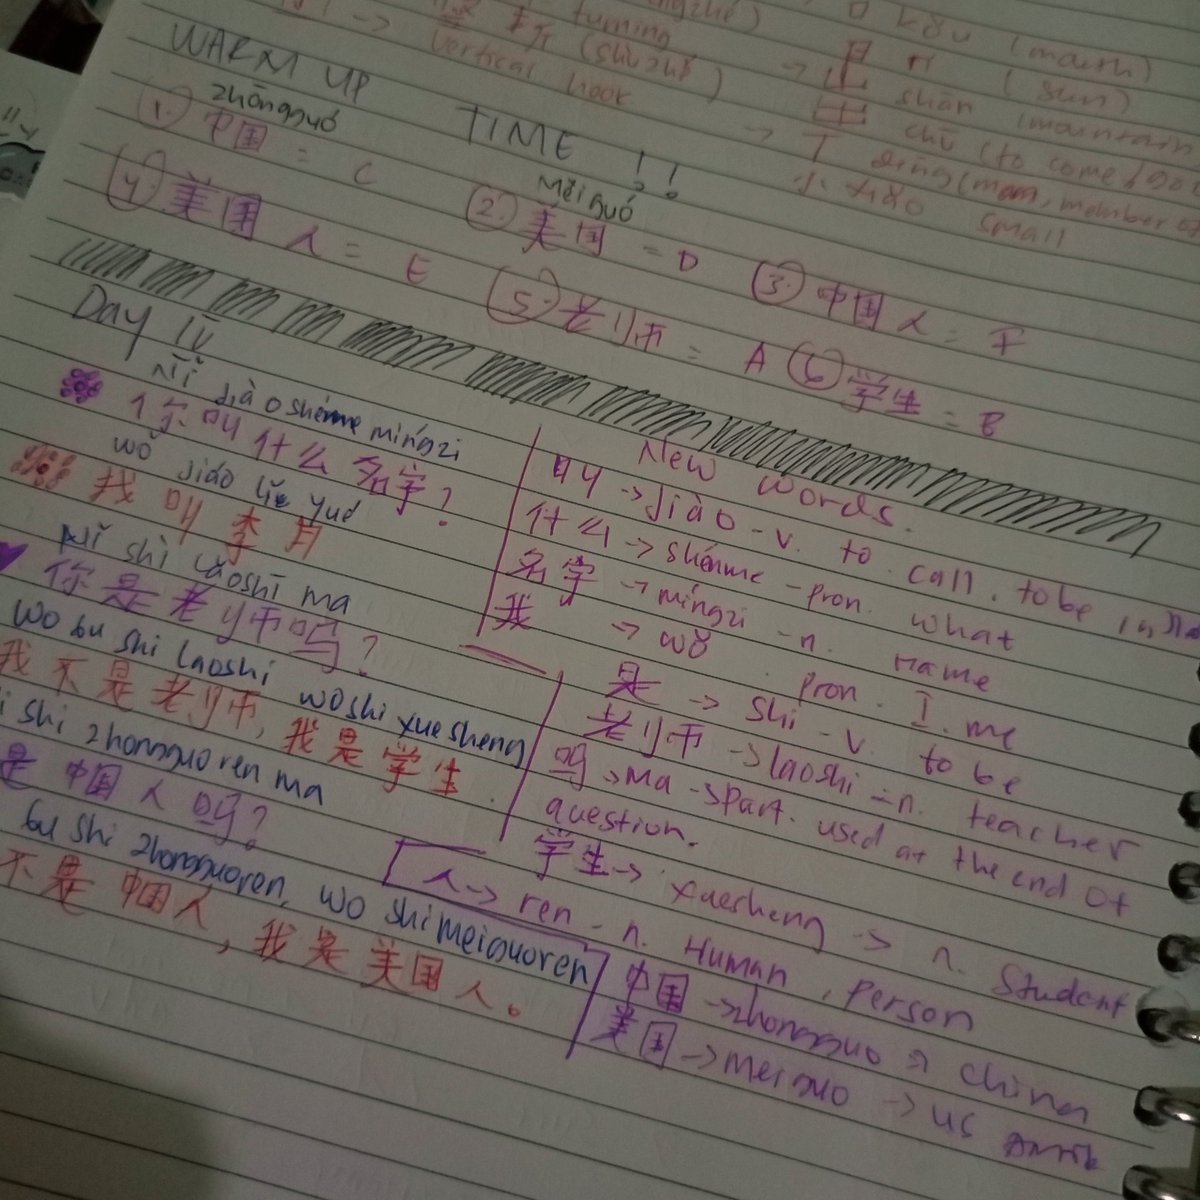 turning (shùzhé)
→ vertical hook
口 kǒu (mouth)
→ 日 rì (sun)
山 shān (mountain
出 chū (to come / go
→ 丁 dīng (man, member of
小 xiǎo small
WARM UP TIME !!
zhōngguó
1. 中国 = C
Měiguó
2. 美国 = D
3. 中国人 = F
4. 美国人 = E
5. 老师 = A
6. 学生 = B
Day IV
nǐ jiào shénme míngzi
你叫什么名字?
wǒ jiào Lǐ yuè
我叫李月
Nǐ shì lǎoshī ma
你是老师吗?
wo bu shi laoshi wo shi xuesheng
我不是老师, 我是学生.
i shi zhongguo ren ma
是中国人吗?
bu shi zhongguoren, wo shi meiguoren
不是中国人, 我是美国人。
New words.
叫 → Jiào - v. to call, to be
什么 → shénme - pron. what
名字 → míngzi - n. name
我 → wǒ pron. I, me
是 → shi - v. to be
老师 → laoshi - n. teacher
吗 → ma → part. used at the end of
question.
学生 → xuesheng → n. student
人 → ren - n. Human, person
中国 → zhongguo → china
美国 → meiguo → US